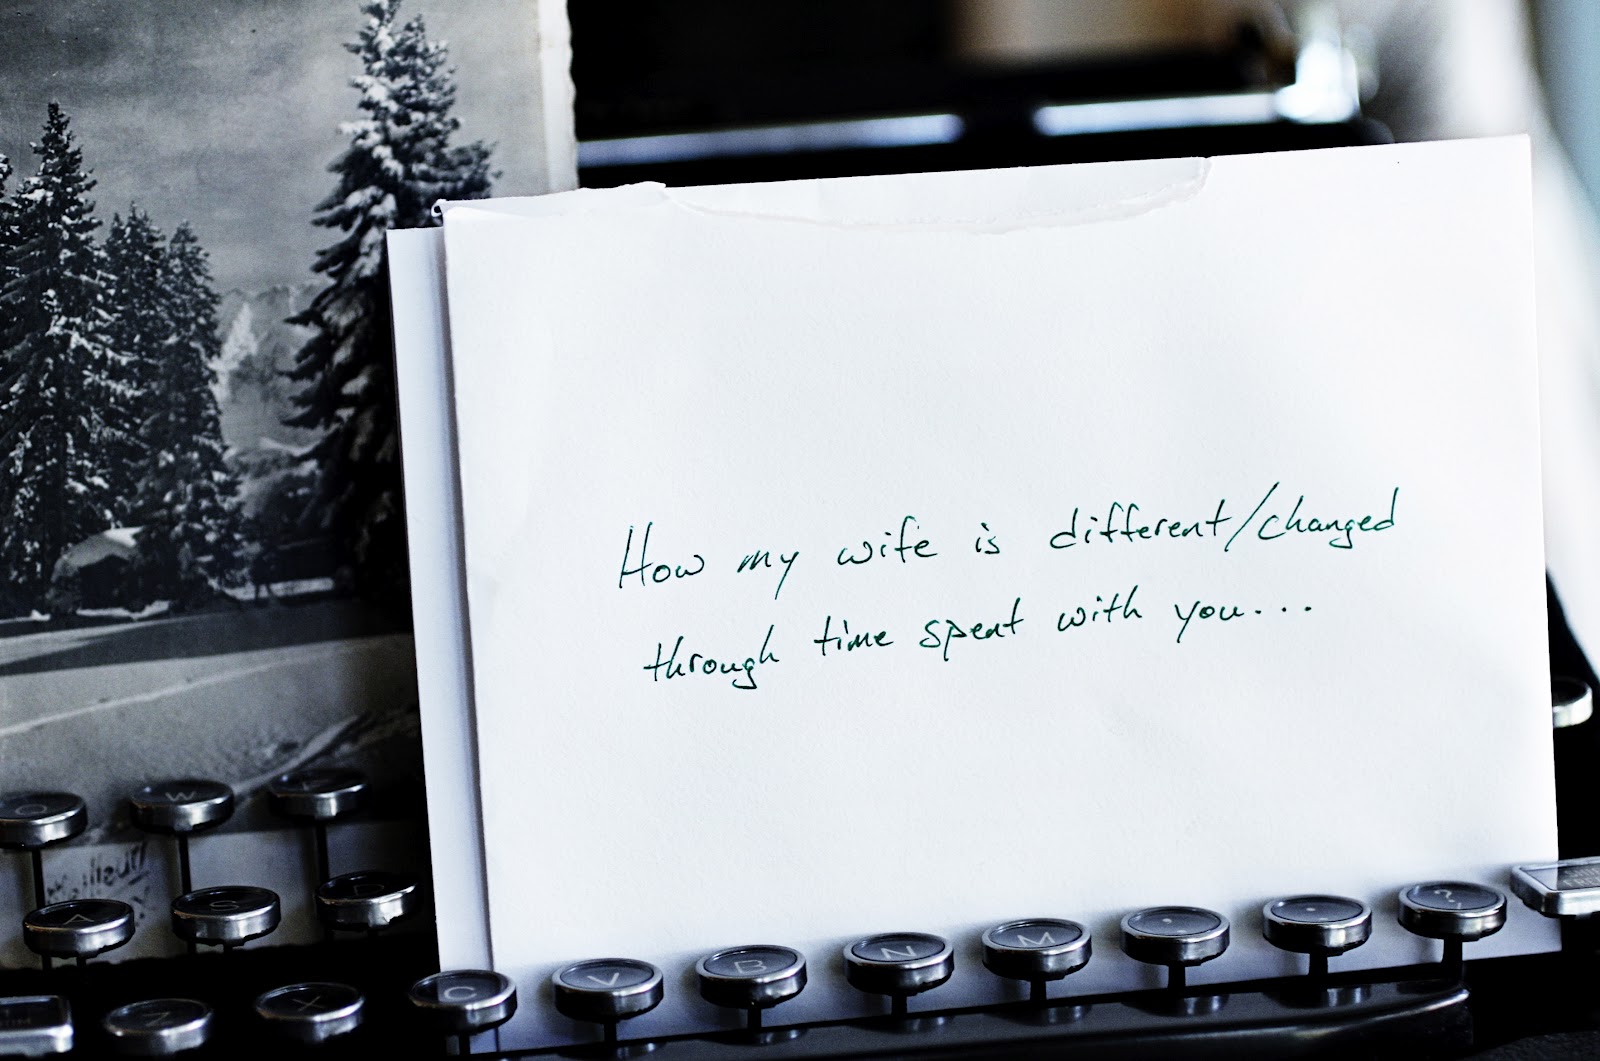 How my wife is different/changed
through time spent with you...
Q W E
A S D
X C V B N M